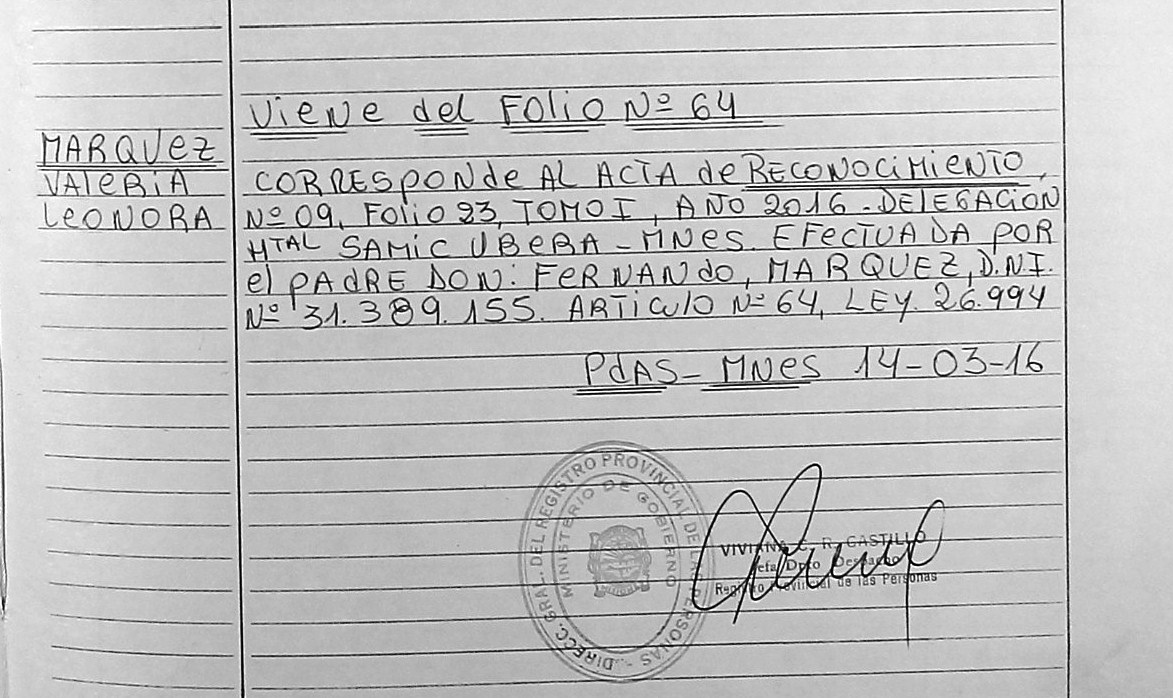 Viene del Folio Nº 64
MARQUEZ
VALERIA
LEONORA
CORRESPONDE AL ACTA de RECONOCIMIENTO,
Nº 09, Folio 23, TOMO I, AÑO 2016 - DELEGACION
HTAL SAMIC UBEBA - MNES. EFECTUADA POR
el PADRE DON: FERNANDO, MARQUEZ, D.N.I.
Nº 31.389.155. ARTICULO Nº 64, LEY. 26.994
PDAS - MNES 14-03-16
DIRECC. GRAL. DEL REGISTRO PROVINCIAL DE LAS PERSONAS
MINISTERIO DE GOBIERNO
VIVIANA R. CASTILLO
Jefa Dpto Despacho
Registro Provincial de las Personas